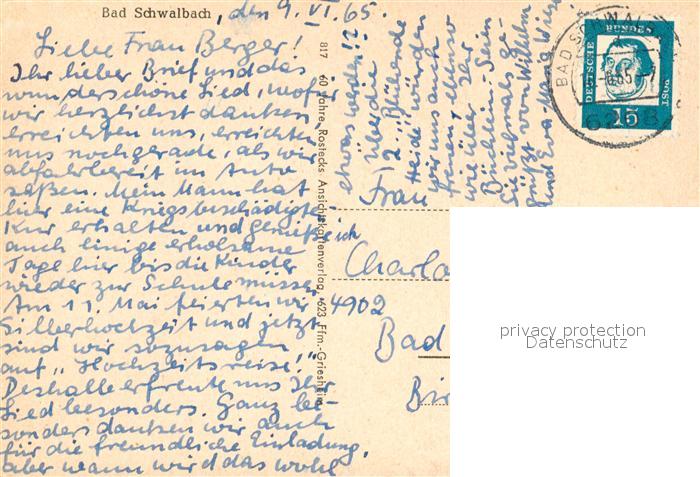 Bad Schwalbach, den 9. VI. 65.
Liebe Frau Berger!
Ihr lieber Brief und das
wunderschöne Lied, wofür
wir herzlichst danken,
erreichten uns, erreichten
uns noch gerade, als wir
abfahrbereit im Auto
saßen. Mein Mann hat
hier eine Kriegsbeschädigten
Kur erhalten und genieße ich
auch einige erholsame
Tage hier bis die Kinder
wieder zur Schule müssen
Am 11. Mai feierten wir
Silberhochzeit und jetzt
sind wir sozusagen
auf "Hochzeitsreise!"
Deshalb erfreute uns Ihr
Lied besonders. Ganz be-
sonders danken wir auch
für die freundliche Einladung,
aber wann wird das wohl
etwas werden!?
Über die
2. "Blühende
Heide" würden
wir uns auch
freuen, ebenso
wie über Ihr
Büchlein. Seien
Sie vielmals ge-
grüßt von Wilhelm
und Eva Maria
817 60 Jahre Rostecks Ansichtskartenverlag, 623 Ffm.-Griesheim
BAD SCHWAL
6208
DEUTSCHE BUNDESPOST
15
Frau
Charlo
4902
Bad
Bir
privacy protection
Datenschutz